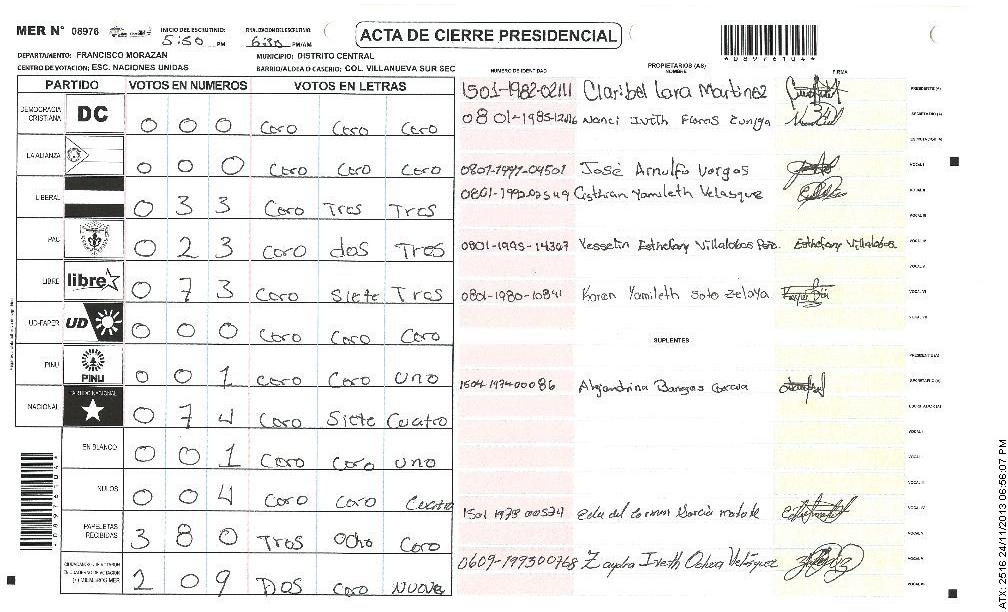 MER N° 08976 INICIO DEL ESCRUTINIO: 5:50 PM FINALIZACION DEL ESCRUTINIO: 6:30 PM/AM
ACTA DE CIERRE PRESIDENCIAL
*08976104*
DEPARTAMENTO: FRANCISCO MORAZAN MUNICIPIO: DISTRITO CENTRAL
CENTRO DE VOTACION: ESC. NACIONES UNIDAS BARRIO/ALDEA O CASERIO: COL. VILLANUEVA SUR SEC
PARTIDO VOTOS EN NUMEROS VOTOS EN LETRAS
DEMOCRACIA CRISTIANA DC 0 0 0 Cero Cero Cero
LA ALIANZA 0 0 0 Cero Cero Cero
LIBERAL 0 3 3 Cero Tres Tres
PAC 0 2 3 Cero dos Tres
LIBRE libre 0 7 3 Cero Siete Tres
UD-FAPER UD 0 0 0 Cero Cero Cero
PINU PINU 0 0 1 Cero Cero uno
NACIONAL PARTIDO NACIONAL 0 7 4 Cero Siete Cuatro
EN BLANCO 0 0 1 Cero Cero uno
NULOS 0 0 4 Cero Cero Cuatro
PAPELETAS RECIBIDAS 3 8 0 Tres Ocho Cero
2 0 9 Dos Cero Nueve
NUMERO DE IDENTIDAD PROPIETARIOS (AS) NOMBRE FIRMA
1501-1982-02111 Claribel Lara Martinez PRESIDENTE (A)
Nanci Iveth Flores Zuniga SECRETARIO (A)
ESCRUTADOR (A)
José Arnulfo Vargas VOCAL I
Cristhian Yamileth Velasquez VOCAL II
VOCAL III
0801-1995-14367 Yesselin Esthefany Villalobos Esthefany Villalobos VOCAL IV
VOCAL V
0801-1980-10841 Karen Yamileth Soto Zelaya VOCAL VI
VOCAL VII
SUPLENTES
PRESIDENTE (A)
1504 1974 00086 Alejandrina Banegas Garcia SECRETARIO (A)
ESCRUTADOR (A)
VOCAL I
VOCAL II
VOCAL III
1501 1973 00574 VOCAL IV
0609-1993 00768 Zayda Iveth Ochoa Velásquez VOCAL V
ATX: 2516 24/11/2013 06:56:07 PM